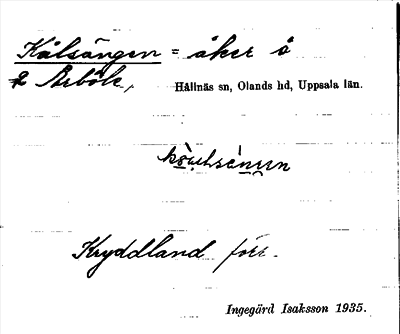 Kålsängen = åker å
Arböle, Hållnäs sn, Olands hd, Uppsala län.
Kryddland förr.
Ingegärd Isaksson 1935.